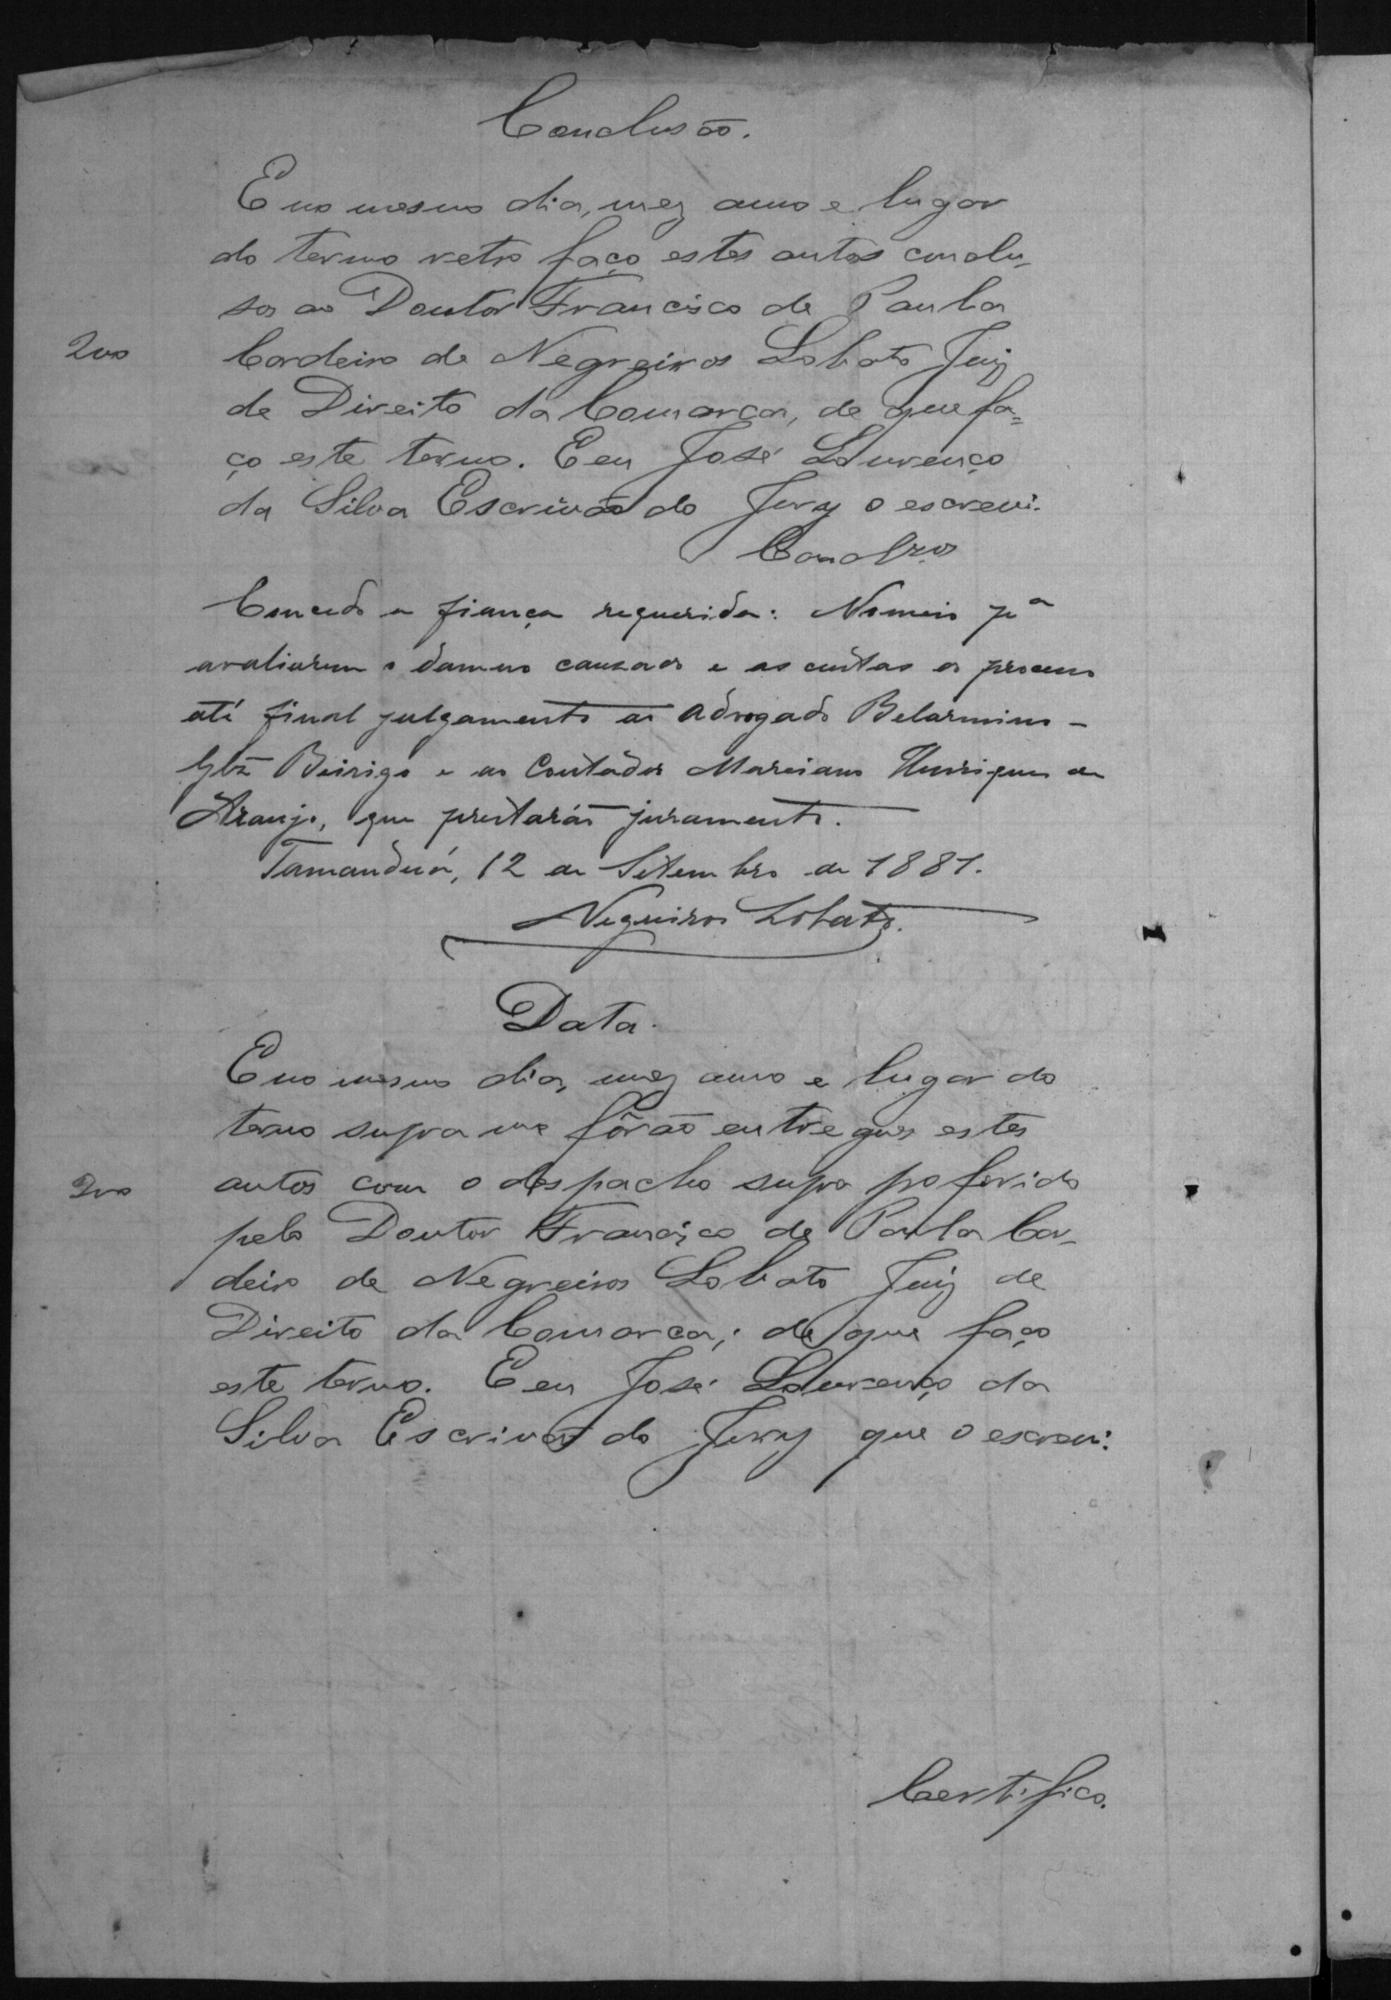 Conclusão.
E no mesmo dia, mez anno e lugar
do termo retro faço estes autos conclu-
sos ao Doutor Francisco de Paula
200
Cordeiro de Negreiros Lobato Juiz
de Direito da Comarca, de que fa=
ço este termo. E eu José Lourenço
da Silva Escrivão do Jury o escrevi.
Conclzos
Concedo a fiança requerida: Nomeio pª
avaliarem o damno causado e as custas do processo
até final julgamento ao Advogado Belarmino -
Beirigo e ao Contador Marciano Henriques de
Araujo, que prestarão juramento.
Tamanduá, 12 de Setembro de 1881.
Negreiros Lobato.
Data.
E no mesmo dia, mez anno e lugar do
termo supra me fôrão entregues estes
200
autos com o despacho supra proferido
pelo Doutor Francisco de Paula Cor-
deiro de Negreiros Lobato Juiz de
Direito da Comarca; de que faço
este termo. E eu José Lourenço da
Silva Escrivão do Jury que o escrevi:
Certifico.